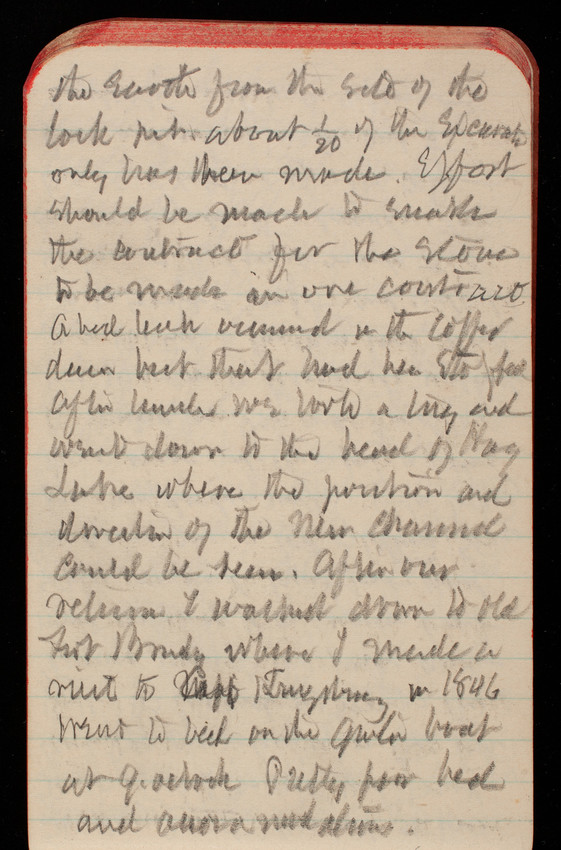 the Earth from the site of the
lock pit. about 1/20 of the Excavate
only has been made. Effort
should be made to make
the contract for the stone
to be made in one contract
A bad leak occurred in the Coffer
dam but that had been stopped
After lunch we took a tug and
went down to the head of Hay
Lake where the position and
direction of the New Channel
could be seen. After our
return I walked down to old
Fort Brady where I made a
visit to Capt Kingsbury in 1846
Went to bed on the boat
at 9. oclock Pretty poor bed
and